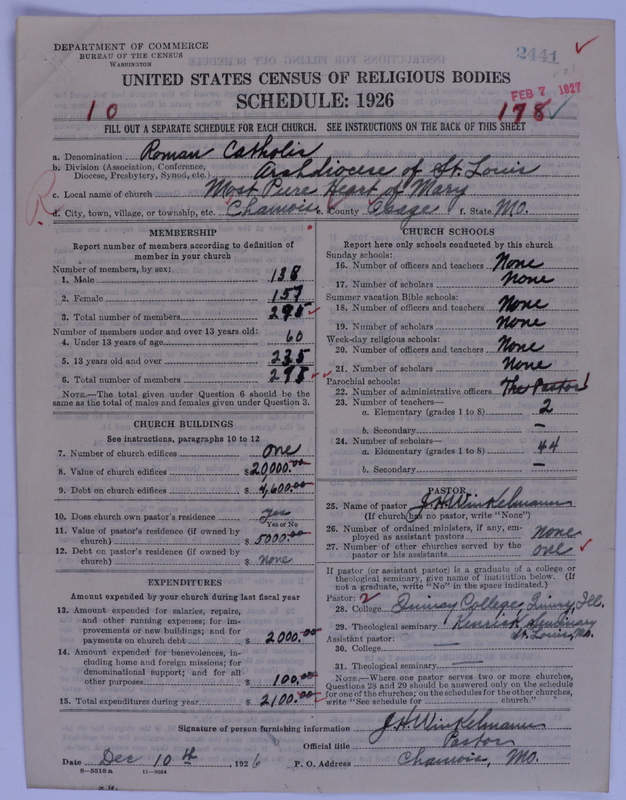 DEPARTMENT OF COMMERCE
BUREAU OF THE CENSUS
WASHINGTON
2441
UNITED STATES CENSUS OF RELIGIOUS BODIES
SCHEDULE: 1926
FEB 7 1927
10
178
FILL OUT A SEPARATE SCHEDULE FOR EACH CHURCH. SEE INSTRUCTIONS ON THE BACK OF THIS SHEET
a. Denomination Roman Catholic
b. Division (Association, Conference, Diocese, Presbytery, Synod, etc.) Archdiocese of St. Louis
c. Local name of church Most Pure Heart of Mary
d. City, town, village, or township, etc. Chamois e. County Osage f. State Mo.
MEMBERSHIP
Report number of members according to definition of
member in your church
Number of members, by sex:
1. Male 138
2. Female 157
3. Total number of members 295
Number of members under and over 13 years old:
4. Under 13 years of age 60
5. 13 years old and over 235
6. Total number of members 295
NOTE.—The total given under Question 6 should be the
same as the total of males and females given under Question 3.
CHURCH BUILDINGS
See instructions, paragraphs 10 to 12
7. Number of church edifices one
8. Value of church edifices $20000.00
9. Debt on church edifices $4,600.00
10. Does church own pastor's residence yes
Yes or No
11. Value of pastor's residence (if owned by
church) $5000.00
12. Debt on pastor's residence (if owned by
church) $none
EXPENDITURES
Amount expended by your church during last fiscal year
13. Amount expended for salaries, repairs,
and other running expenses; for im-
provements or new buildings; and for
payments on church debt $2000.00
14. Amount expended for benevolences, in-
cluding home and foreign missions; for
denominational support; and for all
other purposes $100.00
15. Total expenditures during year $2100.00
CHURCH SCHOOLS
Report here only schools conducted by this church
Sunday schools:
16. Number of officers and teachers None
17. Number of scholars None
Summer vacation Bible schools:
18. Number of officers and teachers None
19. Number of scholars None
Week-day religious schools:
20. Number of officers and teachers None
21. Number of scholars None
Parochial schools:
22. Number of administrative officers The Pastor 1
23. Number of teachers—
a. Elementary (grades 1 to 8) 2
b. Secondary —
24. Number of scholars—
a. Elementary (grades 1 to 8) 44
b. Secondary —
PASTOR
25. Name of pastor J.H. Winkelmann
(If church has no pastor, write "None")
26. Number of ordained ministers, if any, em-
ployed as assistant pastors none
27. Number of other churches served by the
pastor or his assistants one
If pastor (or assistant pastor) is a graduate of a college or
theological seminary, give name of institution below. (If
not a graduate, write "No" in the space indicated.)
Pastor: 2
28. College Quincy College, Quincy, Ill.
29. Theological seminary Kenrick Seminary
St. Louis, Mo.
Assistant pastor:
30. College —
31. Theological seminary —
NOTE.—Where one pastor serves two or more churches,
Questions 28 and 29 should be answered only on the schedule
for one of the churches; on the schedules for the other churches,
write "See schedule for church."
Signature of person furnishing information J.H. Winkelmann
Official title Pastor
Date Dec 10th, 1926 P. O. Address Chamois, Mo.